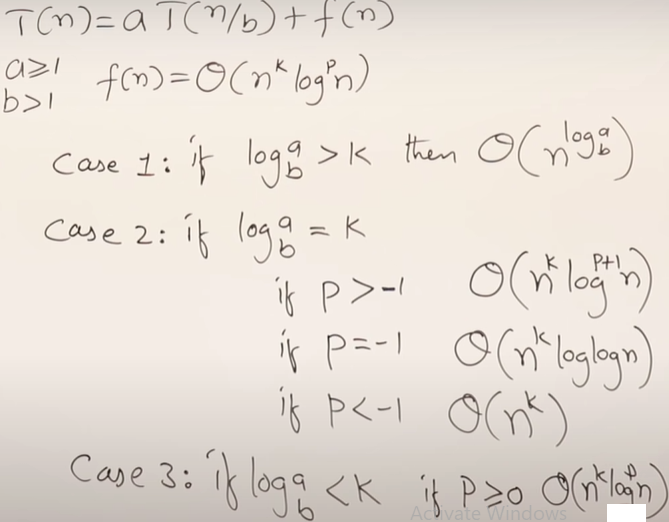 T(n)=aT(n/b)+f(n)
a≥1
b>1 f(n)=Θ(n^k log^p n)
Case 1: if log_b^a > k then Θ(n^(log_b^a))
Case 2: if log_b^a = k
if p>-1 Θ(n^k log^(p+1) n)
if p=-1 Θ(n^k loglogn)
if p<-1 Θ(n^k)
Case 3: if log_b^a < k if p≥0 Θ(n^k log^p n)
Activate Windows